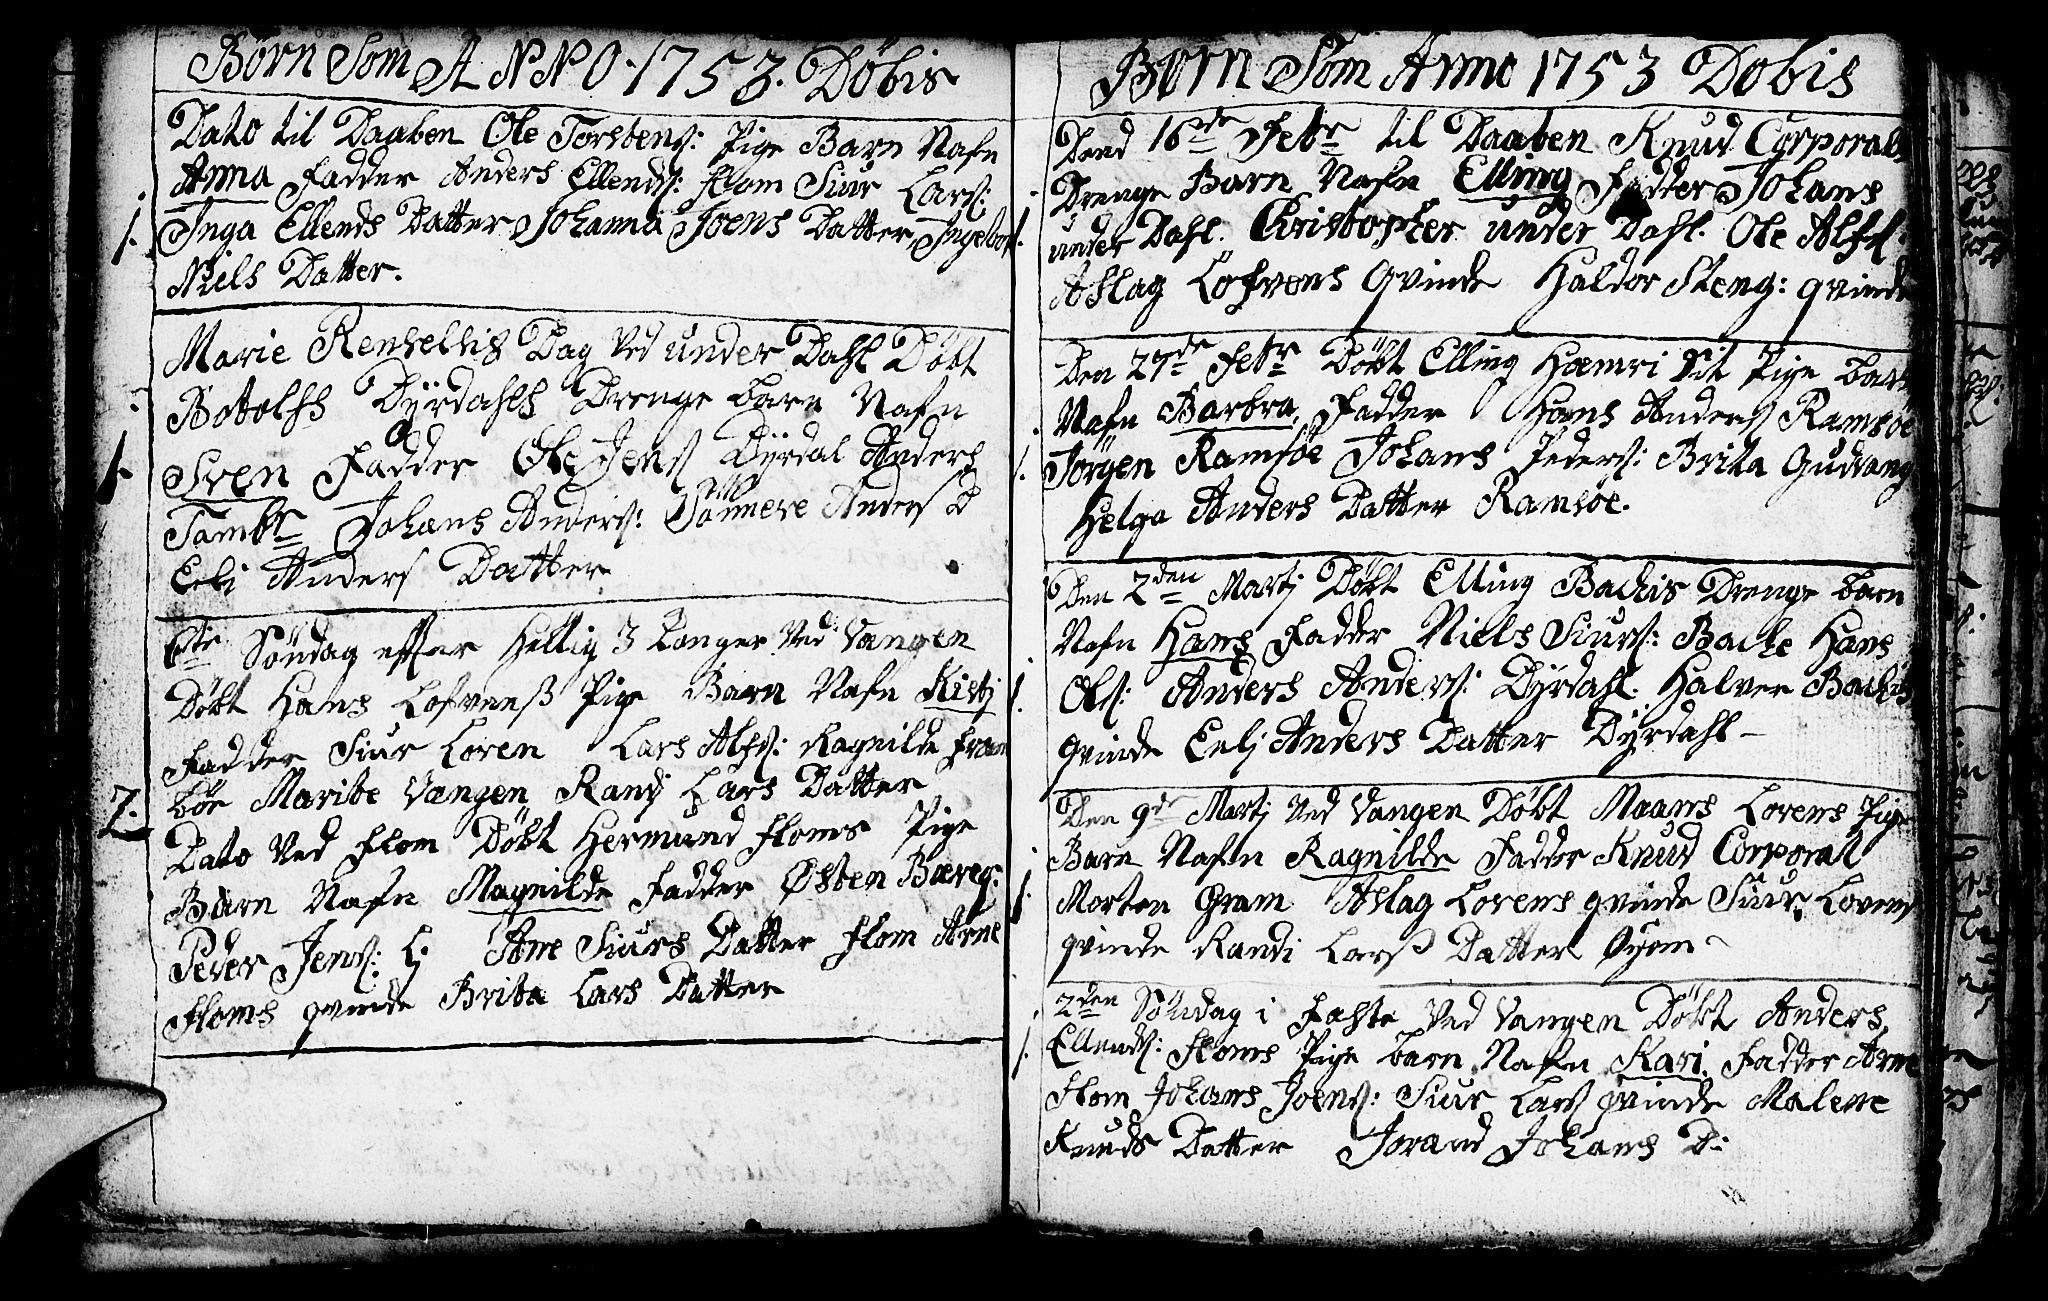 Børn Som ANNO 1753. Döbis
Dato til Daaben Ole Torstens: Pige Barn Nafn
Anna Fadder Anders Ellends: flom Siur Lars:
1. Inga Ellends Datter Johanna Joens Datter Ingebor
Niels Datter.
Marie Renselsis Dag Ved under Dahl Döbt
Botolfs Dÿrdahls Drenge barn Nafn
1. Sven Fadder Ole Jens Dÿrdal Anders
Tambr Johans Anders: Sönneve Anders D
Eeli Anders Datter
Söndag effter Hellig 3 Konger Ved Vangen
Döbt Hans Lofvens Pige Barn Nafn Kistj
Fadder Siur Loren Lars Alfs: Ragnilde Fran
böe Maribe Vangen Randj Lars Datter
2. Dato Ved flom Döbt Hermund floms Pige
Barn Nafn Magnilde Fadder Østen Bæreg:
Peder Jens: Lj Ane Siurs Datter flom Arne
floms qvinde Brita Lars Datter
Børn Som Anno 1753 Dobis
Dend 16de Febr til Daaben Knud Corporals
Drenge Barn Nafn Elling Fadder Johans
1. under Dahl. Christopher under Dahl. Ole Alfs.
Aslag Lofvens Qvinde Haldor Steng: qvinde
Den 27de Febr Döbt Elling Hæmri Sit Pige barn
Nafn Barbra, Fadder Hans Anders Ramsöe
1. Jörgen Ramsöe Johans Peders: Brita Gudvang
Helga Anders Datter Ramsöe.
Den 2den Martj Döbt Elling Backis Drenge barn
Nafn Hans Fadder Niels Siurs: Backe Hans
1. Ols: Anders Anders: Dÿrdahl. Halver Backis
qvinde Eelj Anders Datter Dÿrdahl -
Den 9de Martj Ved Vangen Döbt Maans Lorens Pige
Barn Nafn Ragnilde Fadder Knud Corporal
1. Morten Gram Aslag Lorens qvinde Siur Lovens
qvinde Randi Lars Datter Öyom
2den Söndag i Faste Ved Vangen Döbt Anders
1. Ellends: floms Pige barn Nafn Kari. Fadder Arne
flom Johans Joens: Siur Lars qvinde Malene
Knuds Datter Jorand Johans D: